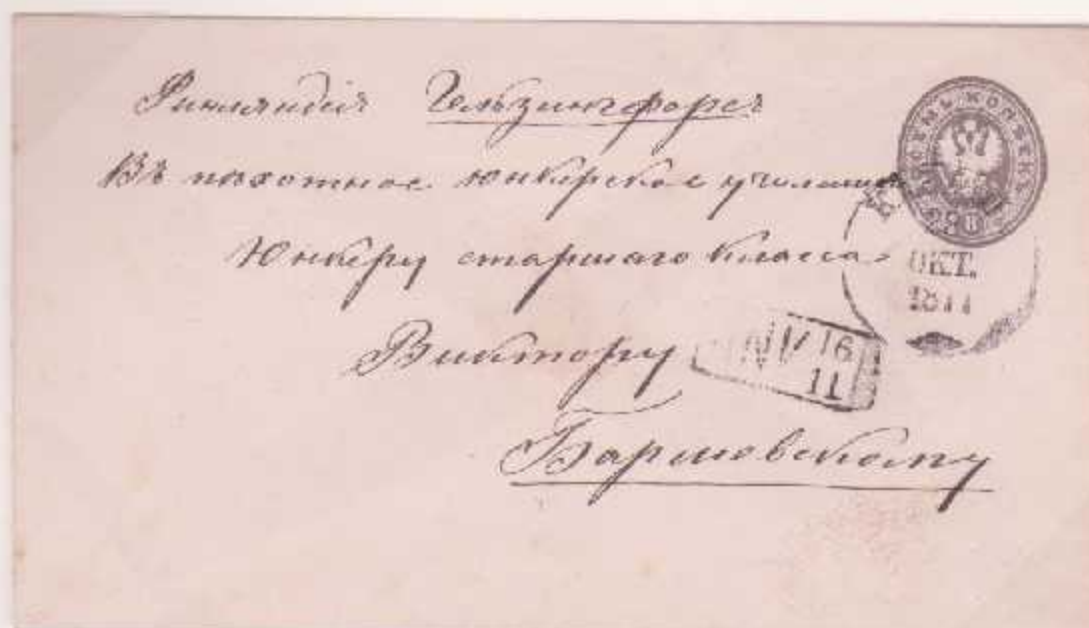 Финляндія Гельзингфорсъ
Въ пехотное юнкерское училище
Юнкеру старшаго класса
Виктору
Баршовскому
ВОСЕМЬ КОПѢЕКЪ
ОКТ.
1877
ANK 16
11